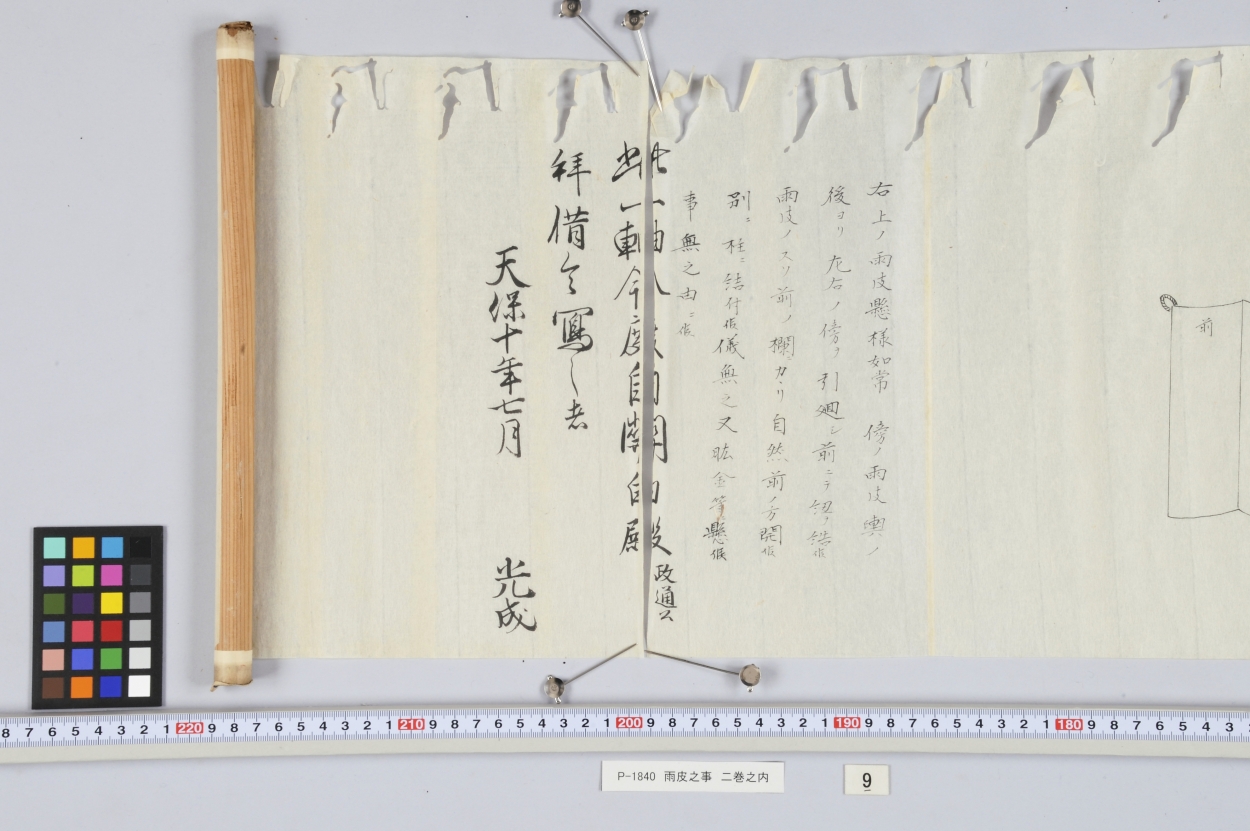 前
右上ノ雨皮懸様如常 傍ノ雨皮輿ノ
後ヨリ左右ノ傍ヲ引廻シ前ニテ紐ヲ結候
雨皮ノスソ前ノ欄ニカヽリ自然前ノ方開候
別ニ柱ニ結付候儀無之又鉱金等懸候
事無之由ニ候
此一軸今度自関白殿政通公
拝借令寫し者
天保十年七月
光成
8 7 6 5 4 3 2 1 220 9 8 7 6 5 4 3 2 1 210 9 8 7 6 5 4 3 2 1 200 9 8 7 6 5 4 3 2 1 190 9 8 7 6 5 4 3 2 1 180 9 8 7 6 5 4 3 2
P-1840 雨皮之事 二巻之内
9